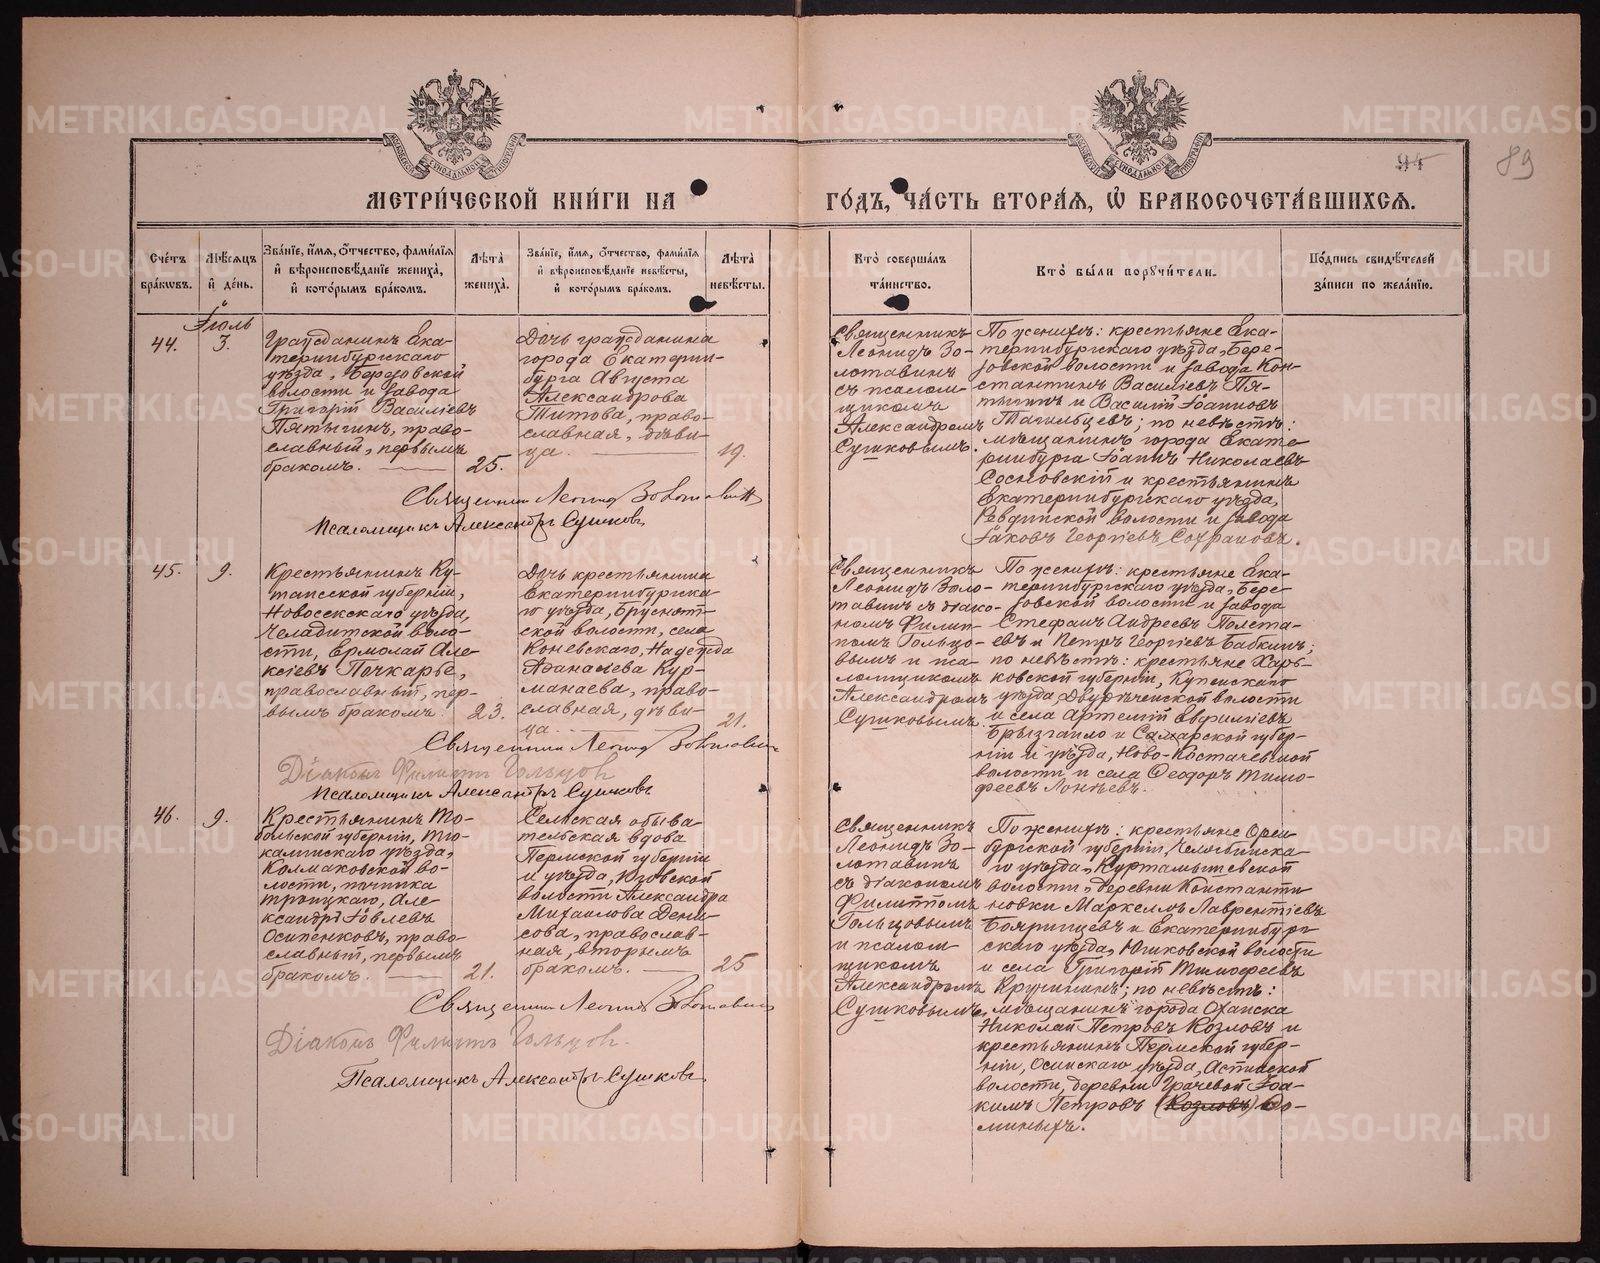 МЕТРИ́ЧЕСКОЙ КНИ́ГИ НА
ГО́ДЪ, ЧА́СТЬ ВТОРА́Я, Ѡ҆ БРАКОСОЧЕТА́ВШИХСЯ.
89
Сче́тъ бра́ковъ.
Мѣ́сяцъ и҆ де́нь.
Зва́нїе, и҆́мя, ѻ҆́тчество, фами́лїя и҆ вѣроисповѣ́данїе жениха̀, и҆ кото́рымъ бра́комъ.
Лѣ́та жениха̀.
Зва́нїе, и҆́мя, ѻ҆́тчество, фами́лїя и҆ вѣроисповѣ́данїе невѣ́сты, и҆ кото́рымъ бра́комъ.
Лѣ́та невѣ́сты.
Кто̀ соверша́лъ та́инство.
Кто̀ бы́ли порꙋчи́тели.
По́дпись свидѣ́телей за́писи по жела́нїю.
Іюль
44.
3.
Гражданинъ Ека-
теринбургскаго
уѣзда, Березовской
волости и завода
Григорій Василіевъ
Пятыгинъ, право-
славный, первымъ
бракомъ.
25.
Дочь гражданина
города Екатерин-
бурга Августа
Александрова
Титова, право-
славная, дѣви-
ца.
19.
Священникъ
Леонидъ Зо-
лотавинъ
съ псалом-
щикомъ
Александромъ
Сушковымъ.
По женихѣ: крестьяне Ека-
теринбургскаго уѣзда, Бере-
зовской волости и завода Кон-
стантинъ Василіевъ Пя-
тыгинъ и Василій Іоанновъ
Тагильцевъ; по невѣстѣ:
мѣщанинъ города Екате-
ринбурга Іоаннъ Николаевъ
Сосновскій и крестьянинъ
Екатеринбургскаго уѣзда,
Ревдинской волости и завода
Іаковъ Георгіевъ Сохрановъ.
Священникъ Леонидъ Золотавинъ
Псаломщикъ Александръ Сушковъ
45.
9.
Крестьянинъ Ку-
таисской губерніи,
Новосенскаго уѣзда,
Челадитской воло-
сти, Ермолай Але-
ксіевъ Почкарбе,
православный, пер-
вымъ бракомъ.
23.
Дочь крестьянина
Екатеринбургска-
го уѣзда, Бруснят-
ской волости, села
Коневскаго, Надежда
Аѳанасіева Кур-
манаева, право-
славная, дѣви-
ца.
21.
Священникъ
Леонидъ Золо-
тавинъ съ діако-
номъ Филип-
помъ Гольцо-
вымъ и пса-
ломщикомъ
Александромъ
Сушковымъ.
По женихѣ: крестьяне Ека-
теринбургскаго уѣзда, Бере-
зовской волости и завода
Стефанъ Андреевъ Полета-
евъ и Петръ Георгіевъ Бабкинъ;
по невѣстѣ: крестьяне Харь-
ковской губерніи, Купенскаго
уѣзда, Двурѣченской волости
и села Артемій Евфиміевъ
Брызгайло и Самарской губер-
ніи и уѣзда, Ново-Костычевской
волости и села Ѳеодоръ Тимо-
феевъ Лонтьевъ.
Священникъ Леонидъ Золотавинъ
Діаконъ Филиппъ Гольцовъ
Псаломщикъ Александръ Сушковъ
46.
9.
Крестьянинъ То-
больской губерніи, Тю-
калинскаго уѣзда,
Колмаковской во-
лости, починка
троицкаго, Але-
ксандръ Іовлевъ
Осипенковъ, право-
славный, первымъ
бракомъ.
21.
Сельская обыва-
тельская вдова
Пермской губерніи
и уѣзда, Юговской
волости Александра
Михаилова Дени-
сова, православ-
ная, вторымъ
бракомъ.
25
Священникъ
Леонидъ Зо-
лотавинъ
съ діакономъ
Филиппомъ
Гольцовымъ
и псалом-
щикомъ
Александромъ
Сушковымъ.
По женихѣ: крестьяне Орен-
бургской губерніи, Челябинска-
го уѣзда, Куртамышевской
волости, деревни Константи-
новки Маркеллъ Лаврентіевъ
Бояринцевъ и Екатеринбург-
скаго уѣзда, Юшковской волости
и села Григорій Тимоѳеевъ
Кручининъ; по невѣстѣ:
мѣщанинъ города Оханска
Николай Петровъ Козловъ и
крестьянинъ Пермской губер-
ніи, Осинскаго уѣзда, Аспинской
волости, деревни Грачевой Іоа-
кимъ Петровъ (Козловъ) Ѳо-
миныхъ.
Священникъ Леонидъ Золотавинъ
Діаконъ Филиппъ Гольцовъ.
Псаломщикъ Александръ Сушковъ
METRIKI.GASO-URAL.RU